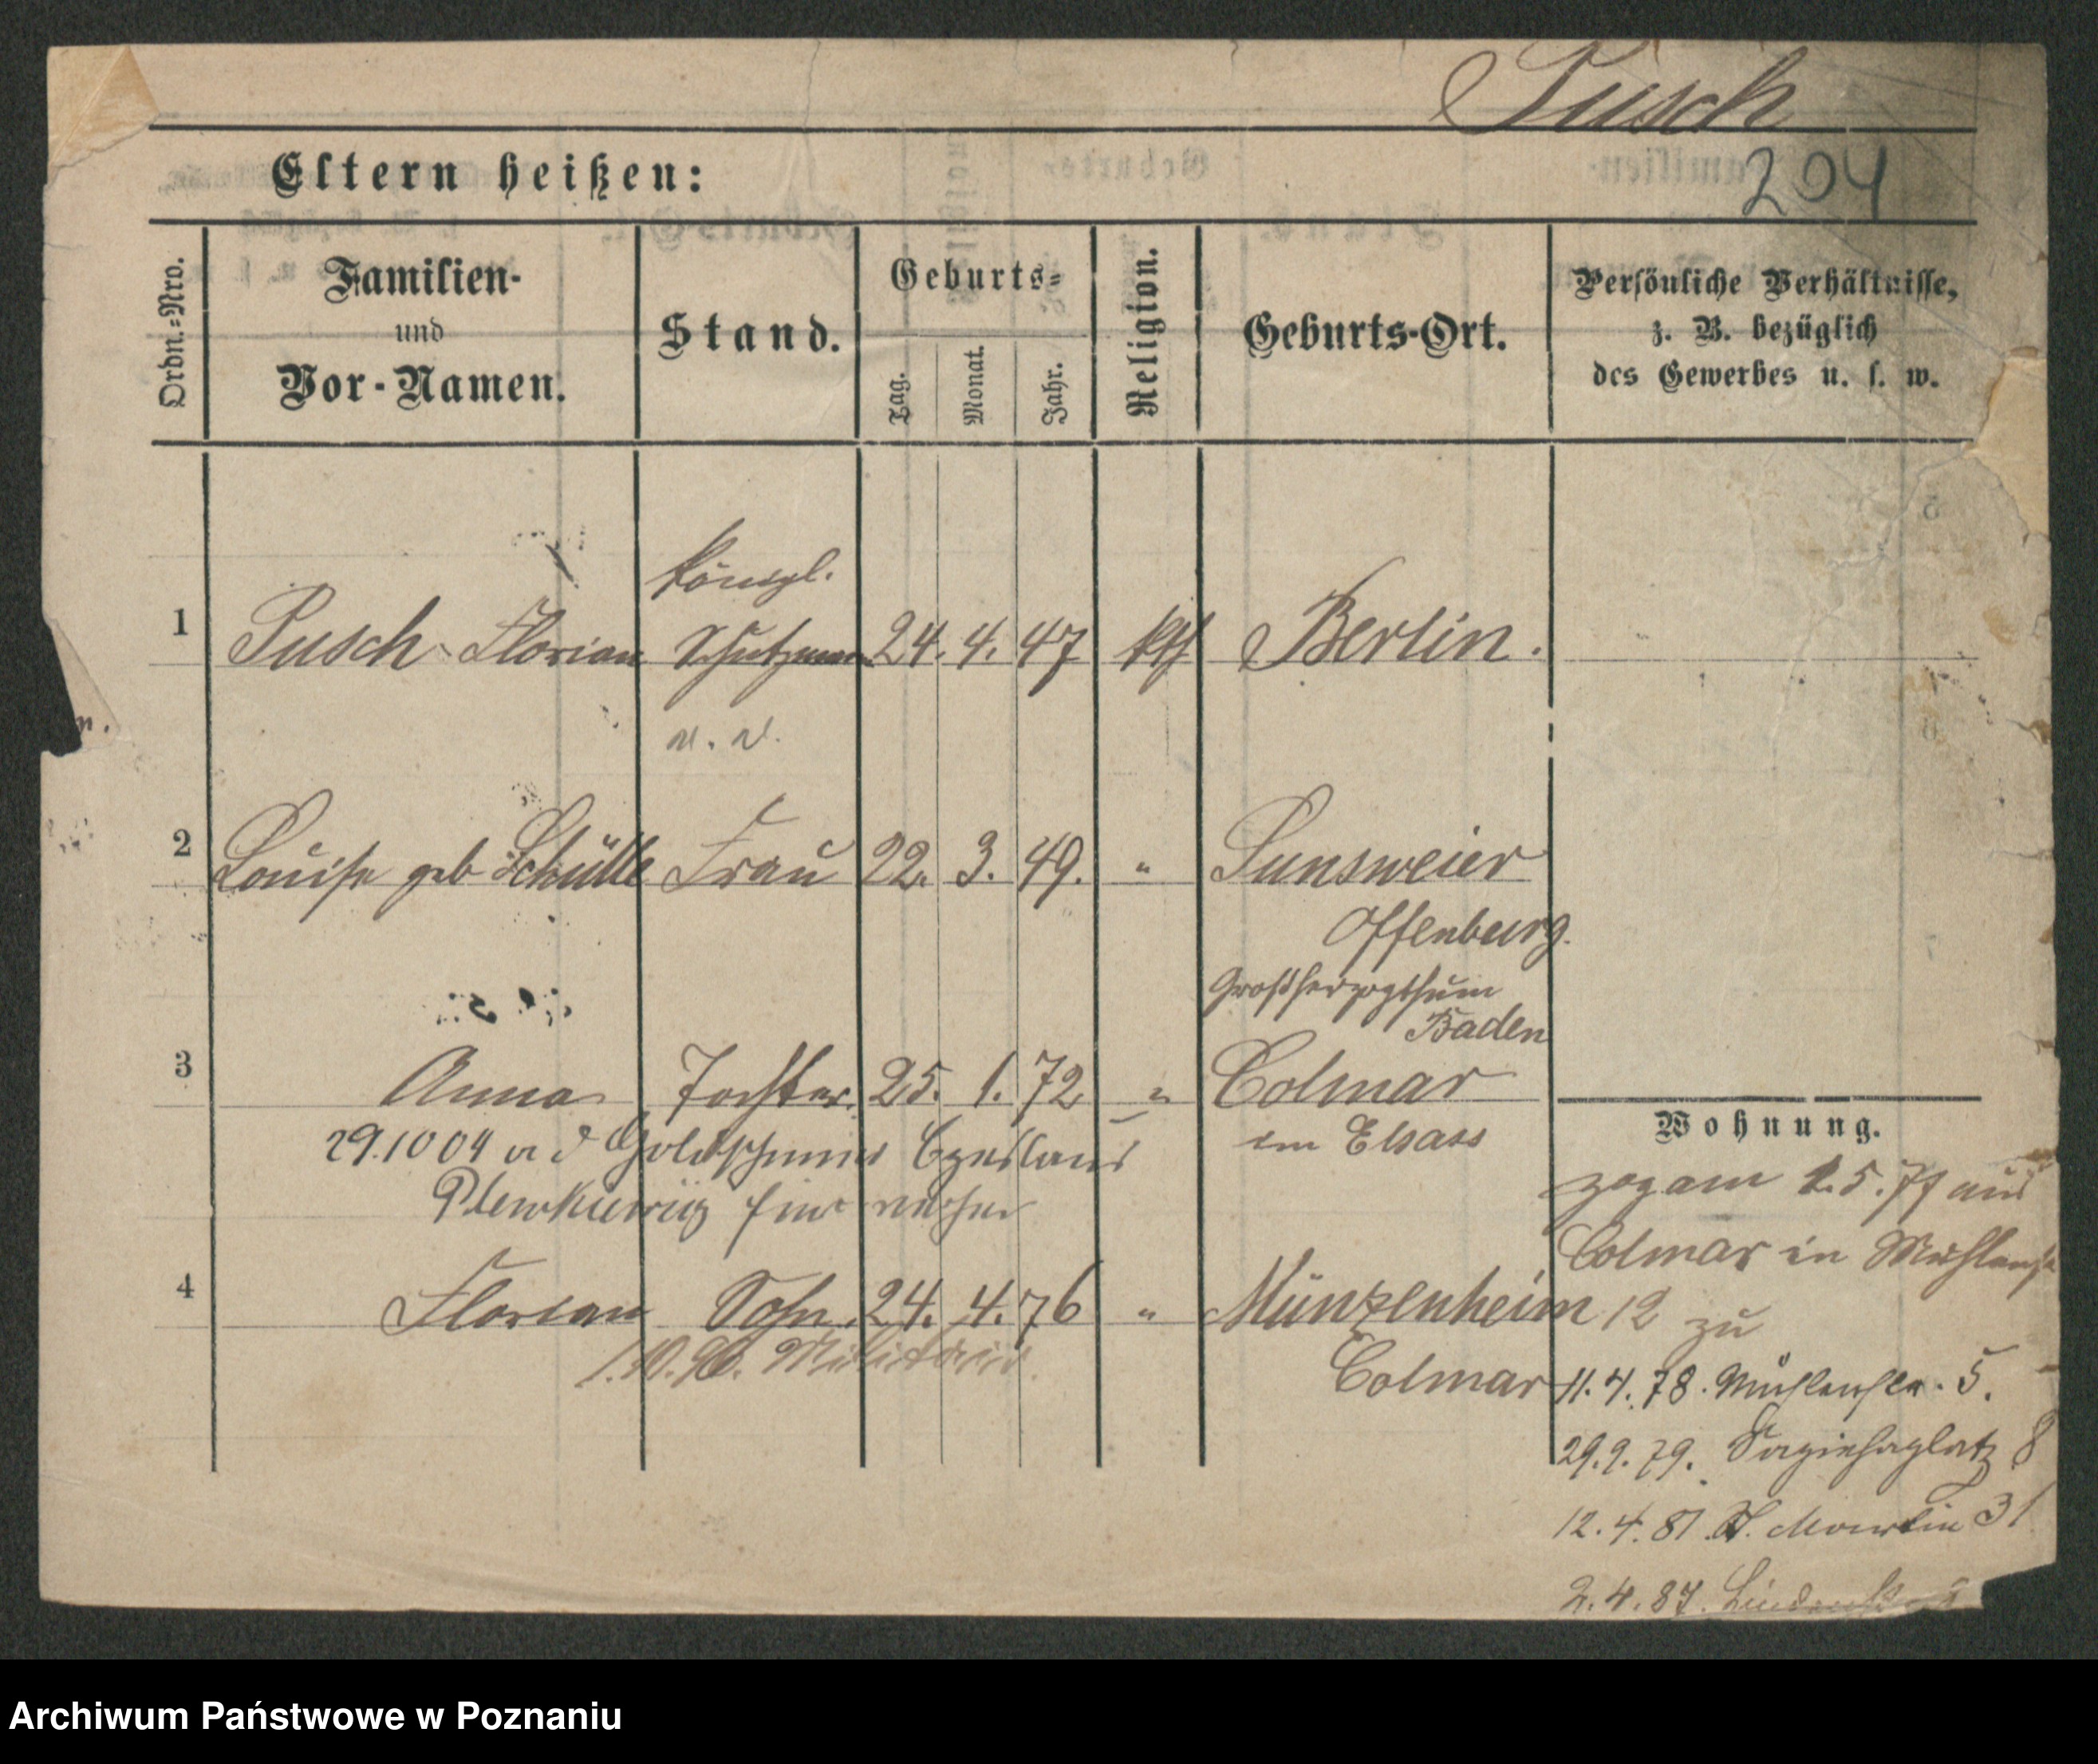 Pusch
204
Eltern heißen:
Ordn.=Nro.
Familien-
und
Vor-Namen.
Stand.
Geburts=
Tag.
Monat.
Jahr.
Religion.
Geburts-Ort.
Persönliche Verhältnisse,
z. B. bezüglich
des Gewerbes u. s. w.
Königl.
1 Pusch Florian Schutzmann 24. 4. 47 kth Berlin.
2 Louise geb Schülle Frau 22. 3. 49. " Sunsweier
Offenburg.
Großherzogthum
Baden
3 Anna Tochter. 25. 1. 72 " Colmar
im Elsass
29.10 04 a d Goldschmied Czeslaus
Plewkiewicz
4 Florian Sohn. 24. 4. 76 " Münzenheim
Colmar
1.10.96. Militair
Wohnung.
zog am 1.5.77 aus
Colmar in Mühlenst
12 zu
11.4.78. Mühlenstr. 5.
29.9.79. Sapiehaplatz 8
12.4.81. St. Martin 31
2.4.87. Lindenst
Archiwum Państwowe w Poznaniu